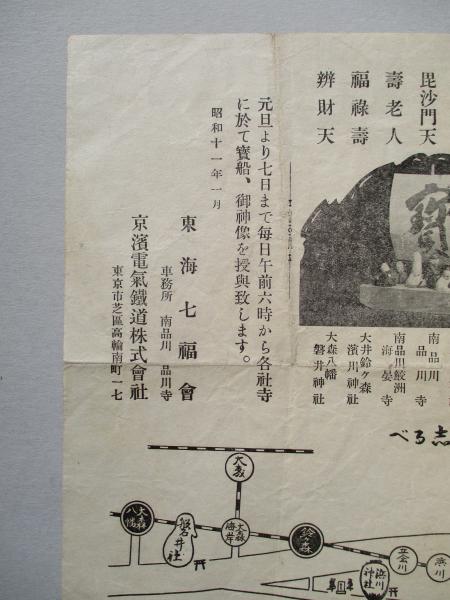 毘沙門天
壽老人
福祿壽
辨財天
寶
南品川
品川寺
南品川鮫洲
海晏寺
大井鈴ヶ森
濱川神社
大森八幡
磐井神社
元旦より七日まで每日午前六時から各社寺
に於て寶船、御神像を授與致します。
昭和十一年一月
東海七福會
事務所 南品川 品川寺
京濱電氣鐵道株式會社
東京市芝區高輪南町一七
志るべ
大森
大森八幡
磐井社
大森海岸
鈴森
立会川
浜川神社
浜川